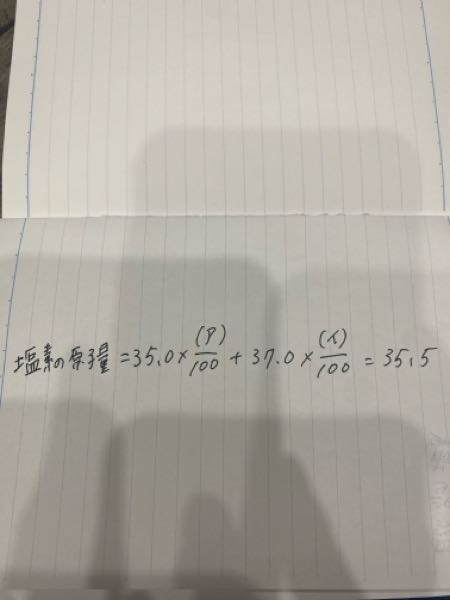 塩素の原子量 = 35.0 × (ア)/100 + 37.0 × (イ)/100 = 35.5